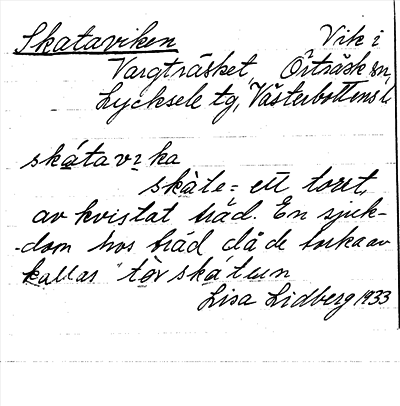 Skataviken Vik i
Vargträsket, Örträsk sn,
Lycksele tg, Västerbottens l.
skátavika
skàte = ett toret,
av kvistat träd. En sjuk-
-dom hos träd då de torka av
kallas "tòr skátun
Lisa Lidberg 1933